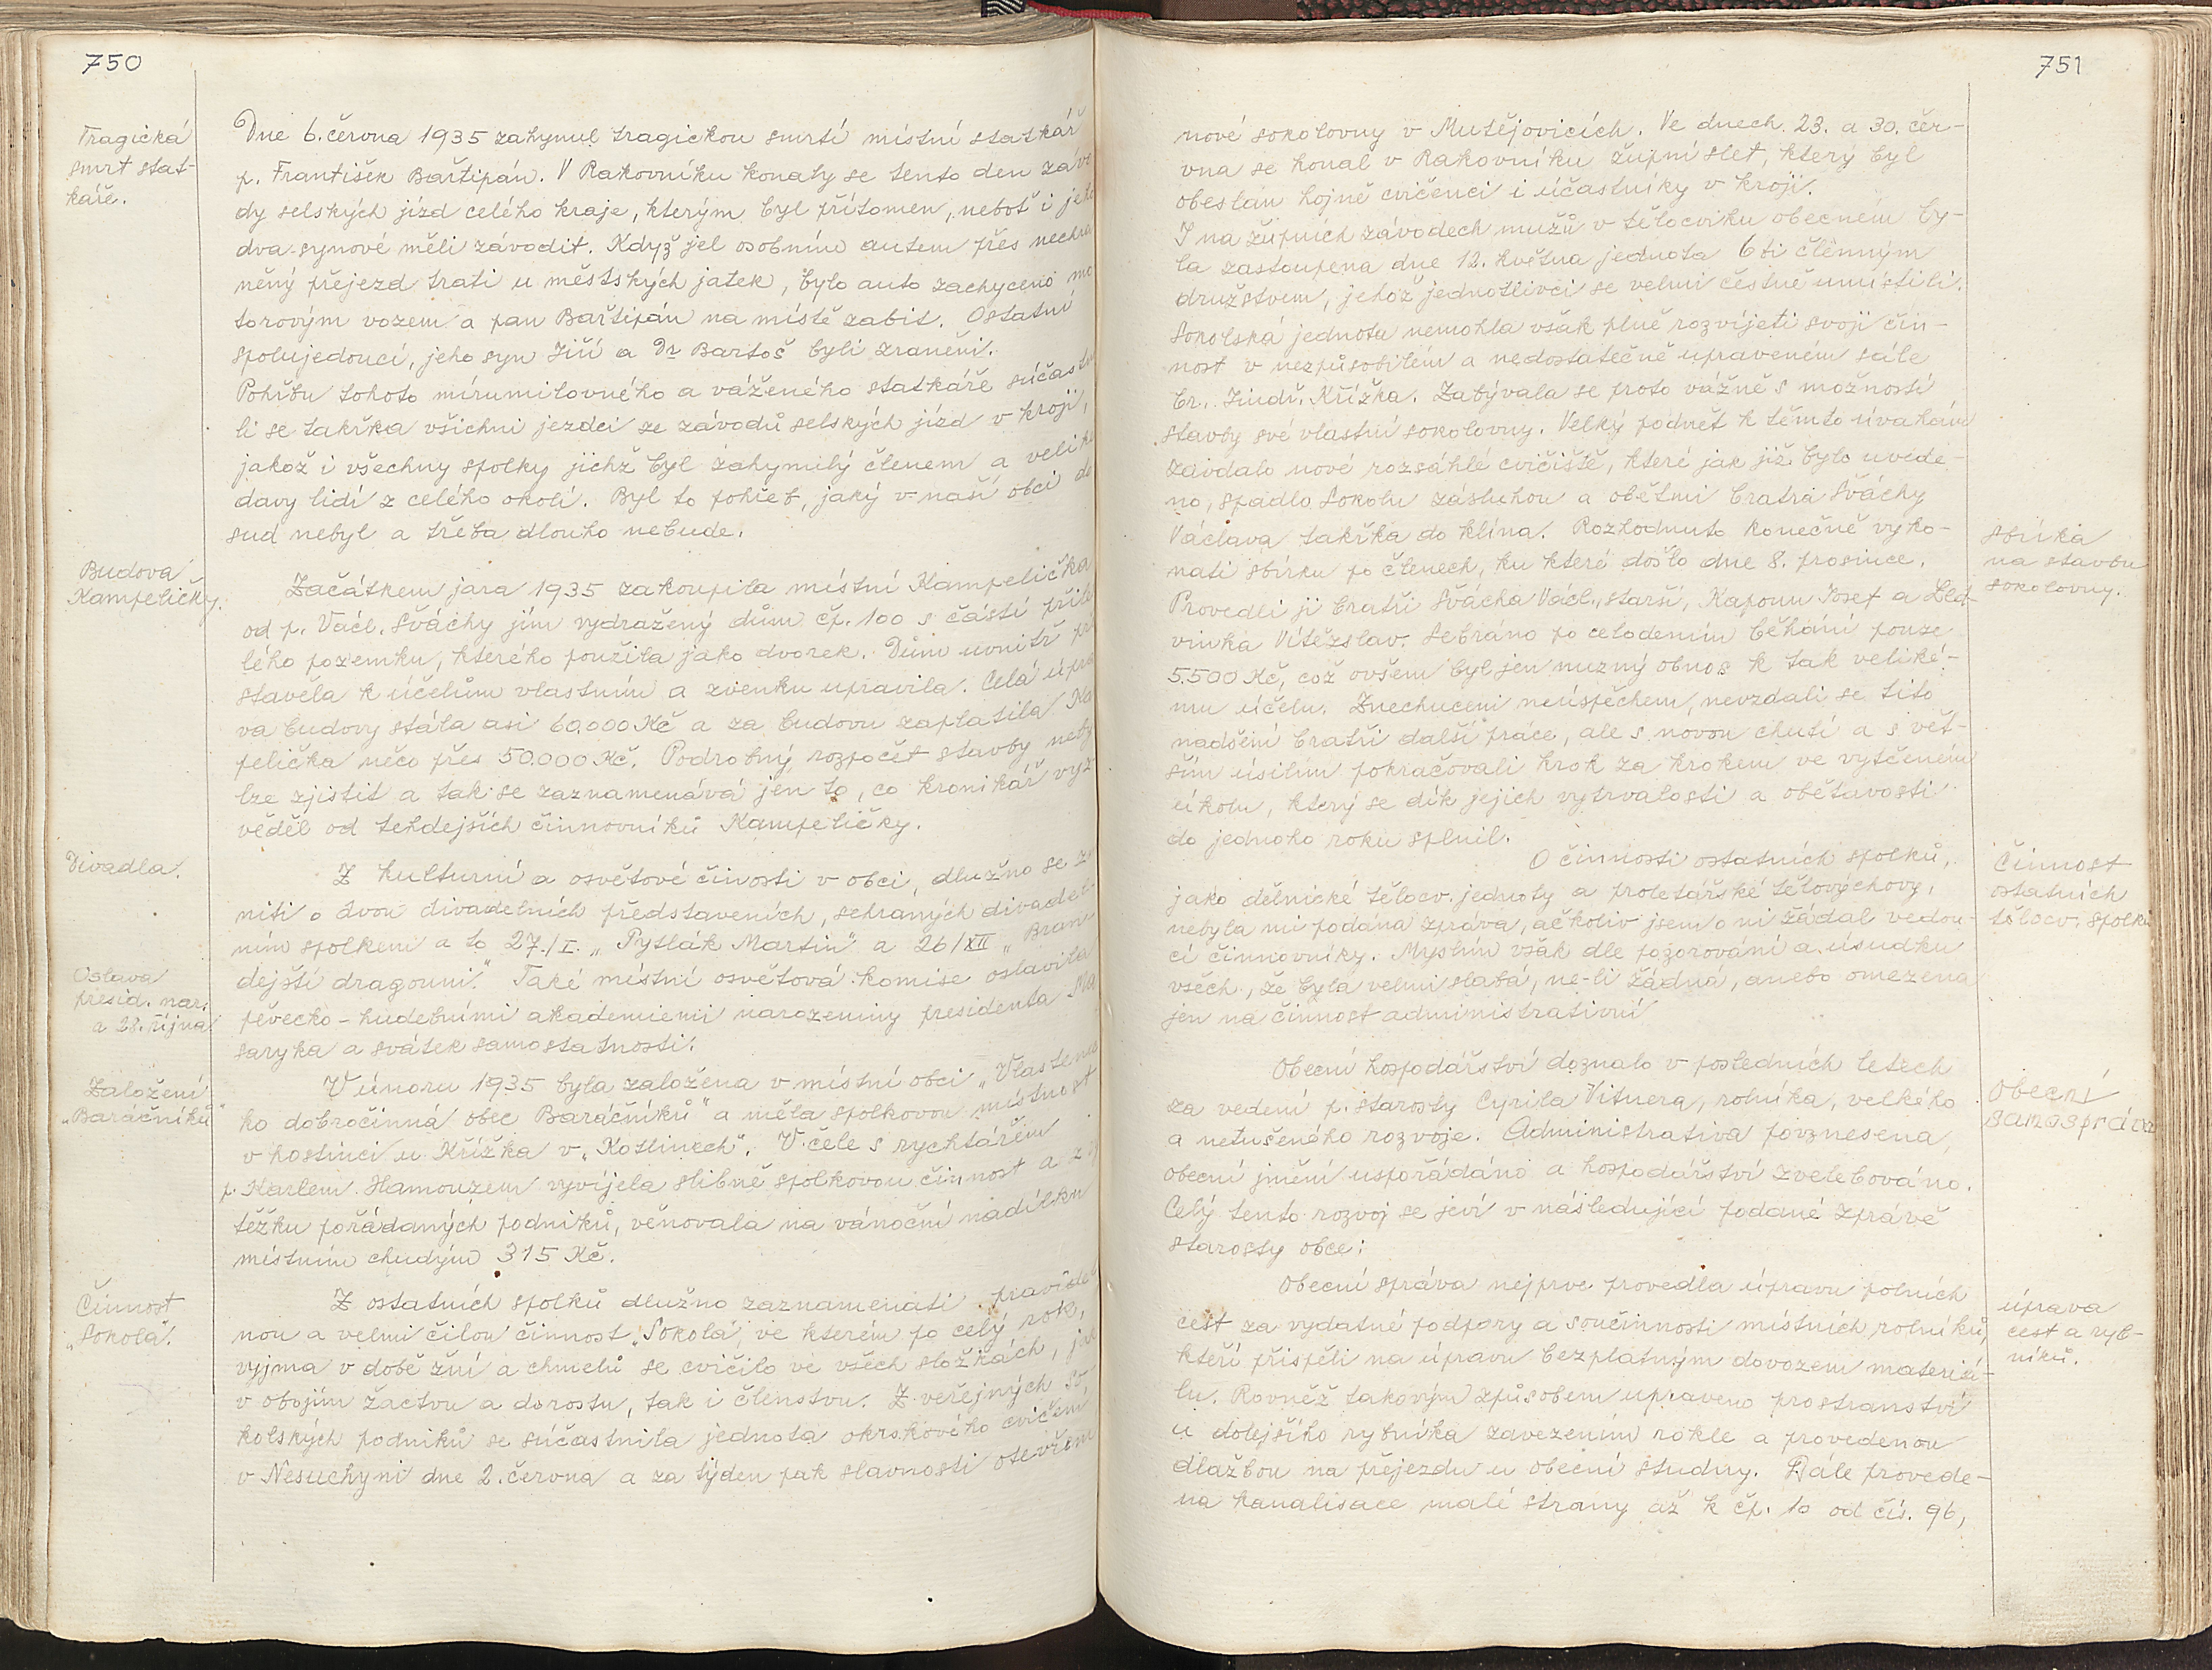 750
Tragická
smrt stat-
káře.
Dne 6. června 1935 zahynul tragickou smrtí místní statkář
p. František Bařtipán. V Rakovníku konaly se tento den závo
dy selských jízd celého kraje, kterým byl přítomen, neboť i jeho
dva synové měli závodit. Když jel osobním autem přes nechrá
něný přejezd trati u městských jatek, bylo auto zachyceno mo
torovým vozem a pan Bařtipán na místě zabit. Ostatní
spolujedoucí, jeho syn Jiří a Dr Bartoš byli zraněni.
Pohřbu tohoto mírumilovného a váženého statkáře súčastni
li se takřka všichni jezdci ze závodů selských jízd v kroji,
jakož i všechny spolky jichž byl zahynulý členem a veliké
davy lidí z celého okolí. Byl to pohřeb, jaký v naší obci do
sud nebyl a třeba dlouho nebude.
Budova
Kampeličky.
Začátkem jara 1935 zakoupila místní Kampelička
od p. Václ. Šváchy jím vydražený dům čp. 100 s částí přile
lého pozemku, kterého použila jako dvorek. Dům uvnitř pře
stavěla k účelům vlastním a zvenku upravila. Celá úpra
va budovy stála asi 60.000 Kč a za budovu zaplatila Ka
pelička něco přes 50.000 Kč. Podrobný rozpočet stavby neby
lze zjistit a tak se zaznamenává jen to, co kronikář vyz
věděl od tehdejších činnovníků Kampeličky.
Divadla.
Z kulturní a osvětové činosti v obci, dlužno se zm
niti o dvou divadelních představeních, sehraných divadel-
ním spolkem a to 27./I. „Pytlák Martin" a 26/XII „Bran
dejští dragouni." Také místní osvětová komise oslavila
Oslava
presid. nar.
a 28. října
pěvecko-hudebními akademiemi narozeniny presidenta Ma
saryka a svátek samostatnosti.
Založení
„Baráčníků"
V únoru 1935 byla založena v místní obci „Vlastenec
ko dobročinná obec Baráčníků" a měla spolkovou místnost
v hostinci u Křížka v „Kotlinech". V čele s rychtářem
p. Karlem Hamouzem vyvíjela slibně spolkovou činnost a z vý
těžku pořádaných podniků, věnovala na vánoční nadílku
místním chudým 315 Kč.
Činnost
„Sokola".
Z ostatních spolků dlužno zaznamenati pravidel
nou a velmi čilou činnost „Sokola", ve kterém po celý rok,
vyjma v době žní a chmelů se cvičilo ve všech složkách, jak
v obojím žactvu a dorostu, tak i členstvu. Z veřejných so
kolských podniků se súčastnila jednota okrskového cvičení
v Nesuchyni dne 2. června a za týden pak slavnosti otevření
751
nové sokolovny v Mutějovicích. Ve dnech 23. a 30. čer-
vna se konal v Rakovníku župní slet, který byl
obeslán hojně cvičenci i účastníky v kroji.
I na župních závodech mužů v tělocviku obecném by-
la zastoupena dne 12. května jednota 6ti členným
družstvem, jehož jednotlivci se velmi čestně umístili.
Sokolská jednota nemohla však plně rozvíjeti svoji čin-
nost v nezpůsobilém a nedostatečně upraveném sále
br. Jindř. Křížka. Zabývala se proto vážně s možností
stavby své vlastní sokolovny. Velký podnět k těmto úvahám
zavdalo nové rozsáhlé cvičiště, které jak již bylo uvede-
no, spadlo Sokolu zásluhou a obětmi bratra Šváchy
Václava takřka do klína. Rozhodnuto konečně vyko-
nati sbírku po členech, ku které došlo dne 8. prosince.
Sbírka
na stavbu
sokolovny.
Provedli ji bratři Švácha Václ., starší, Kapoun Josef a Led-
vinka Vítězslav. Sebráno po celodením běhání pouze
5.500 Kč, což ovšem byl jen nuzný obnos k tak veliké-
mu účelu. Znechuceni neúspěchem, nevzdali se tito
nadšení bratři další práce, ale s novou chutí a s vět-
ším úsilím pokračovali krok za krokem ve vytčeném
úkolu, který se dík jejich vytrvalosti a obětavosti
do jednoho roku splnil.
O činnosti ostatních spolků,
Činnost
ostatních
tělocv. spolků
jako dělnické tělocv. jednoty a proletářské tělovýchovy,
nebyla mi podána zpráva, ačkoliv jsem o ni žádal vedou-
cí činnovníky. Myslím však dle pozorování a úsudku
všech, že byla velmi slabá, ne-li žádná, anebo omezena
jen na činnost administrativní
Obecní hospodářství doznalo v posledních letech
Obecní
samospráva
za vedení p. starosty Cyrila Vitnera, rolníka, velkého
a netušeného rozvoje. Administrativa povznesena,
obecní jmění uspořádáno a hospodářství zvelebováno.
Celý tento rozvoj se jeví v následující podané zprávě
starosty obce:
Obecní správa nejprve provedla úpravu polních
úprava
cest a ryb-
níků.
cest za vydatné podpory a součinnosti místních rolníků,
kteří přispěli na úpravu bezplatným dovozem materiá-
lu. Rovněž takovým způsobem upraveno prostranství
u dolejšího rybníka zavezením rokle a provedenou
dlažbou na přejezdu u obecní studny. Dále provede-
na kanalisace malé strany až k čp. 10 od čís. 96,